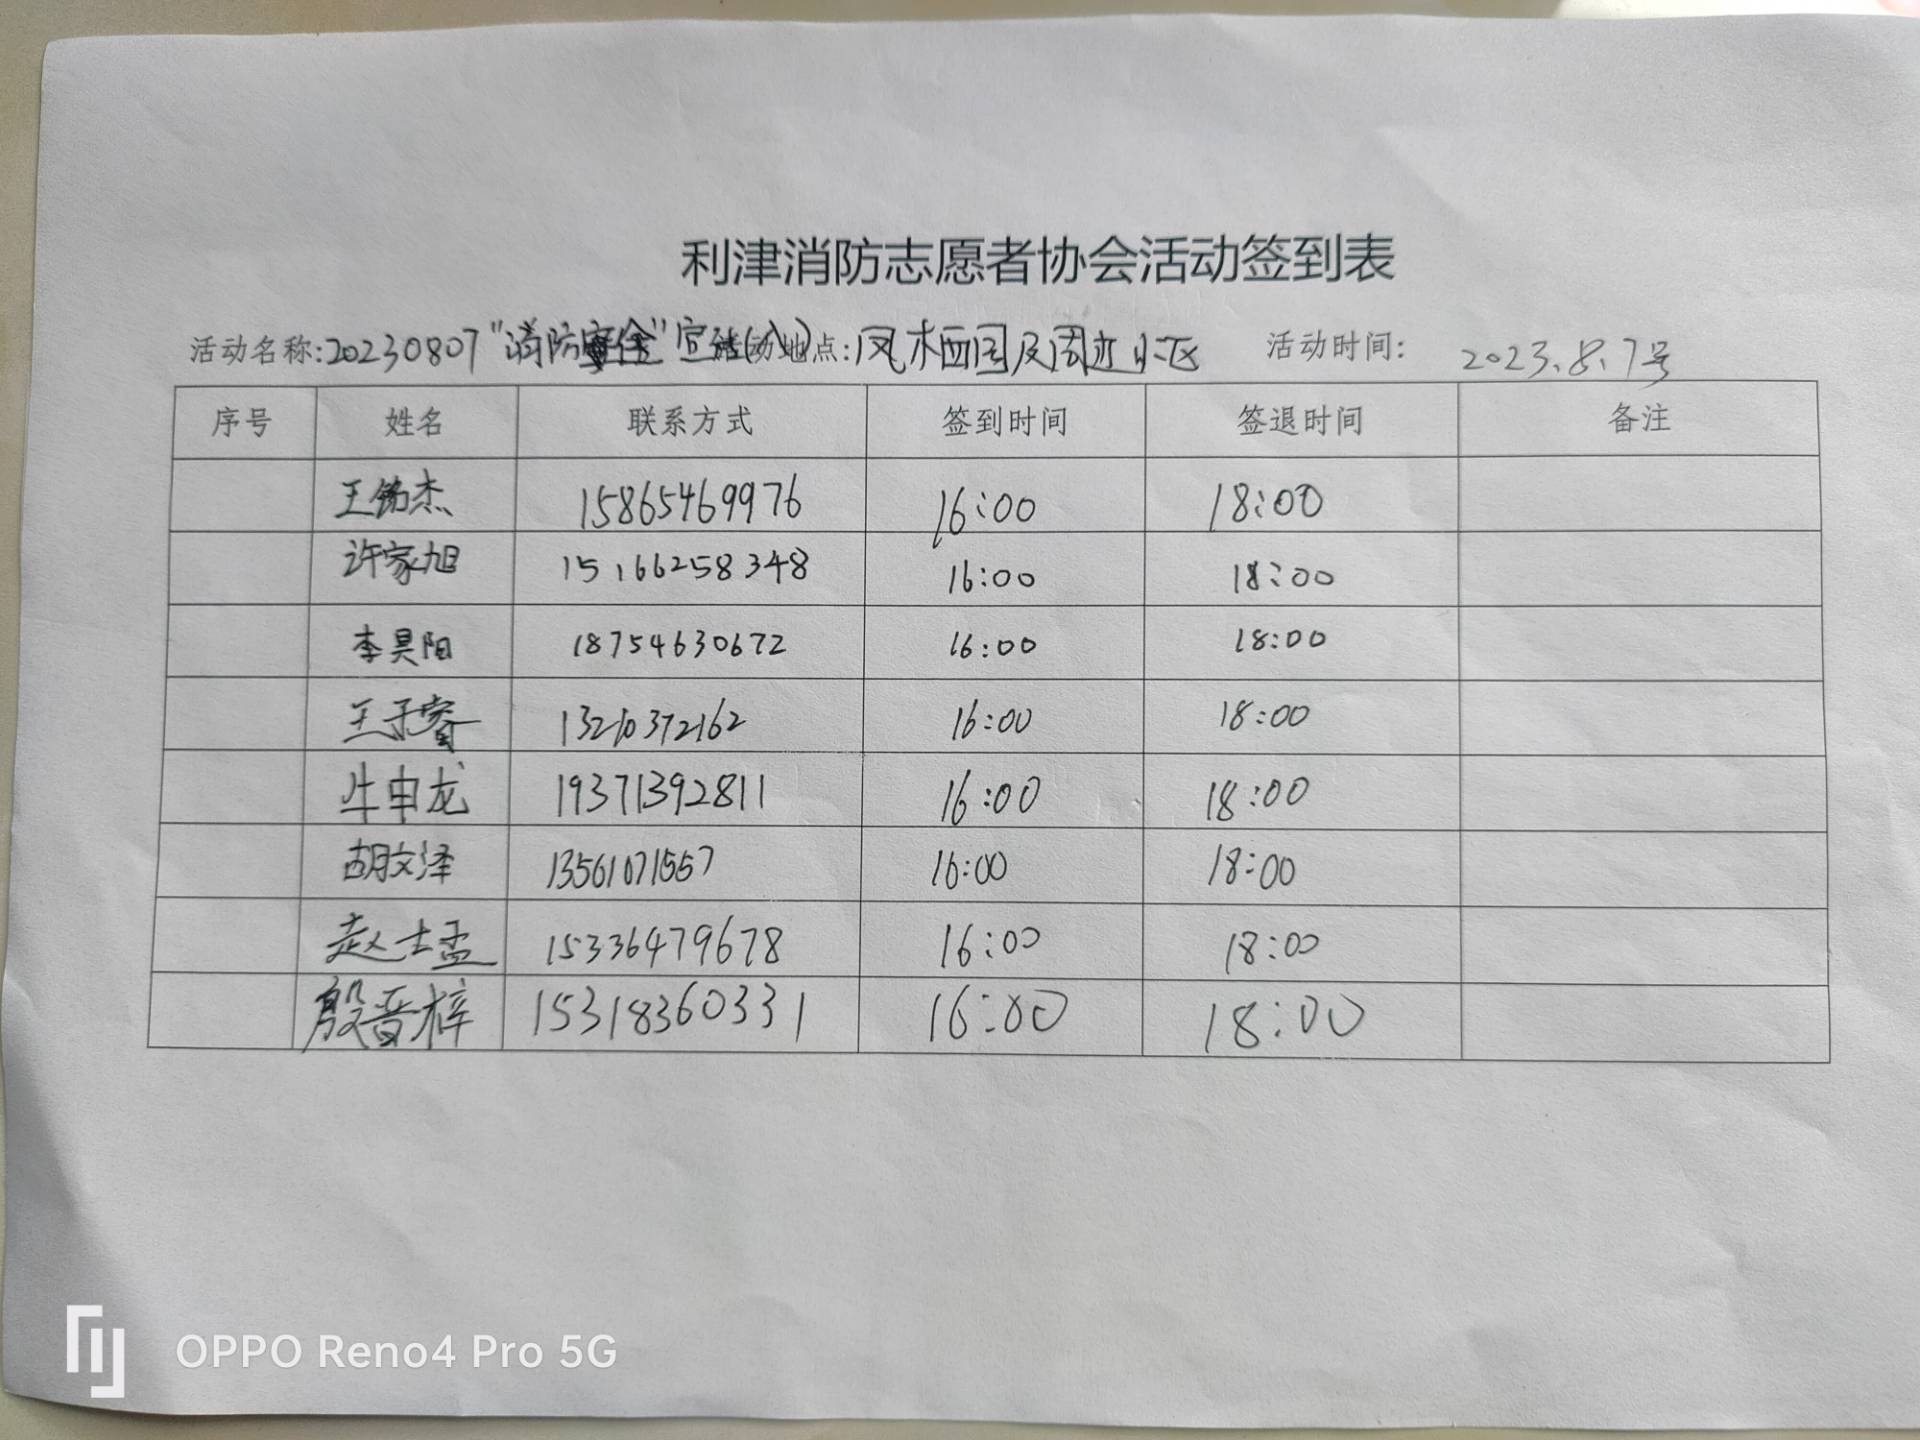 利津消防志愿者协会活动签到表
活动名称:20230807"消防安全"宣传(八) 活动地点:凤栖园及周边小区 活动时间: 2023.8.7号
序号 姓名 联系方式 签到时间 签退时间 备注
王锡杰 15865469976 16:00 18:00
许家旭 15166258348 16:00 18:00
李昊阳 18754630672 16:00 18:00
王子睿 13210372162 16:00 18:00
牛申龙 19371392811 16:00 18:00
胡文泽 13561071557 16:00 18:00
赵士孟 15336479678 16:00 18:00
殷晋梓 15318360331 16:00 18:00
OPPO Reno4 Pro 5G